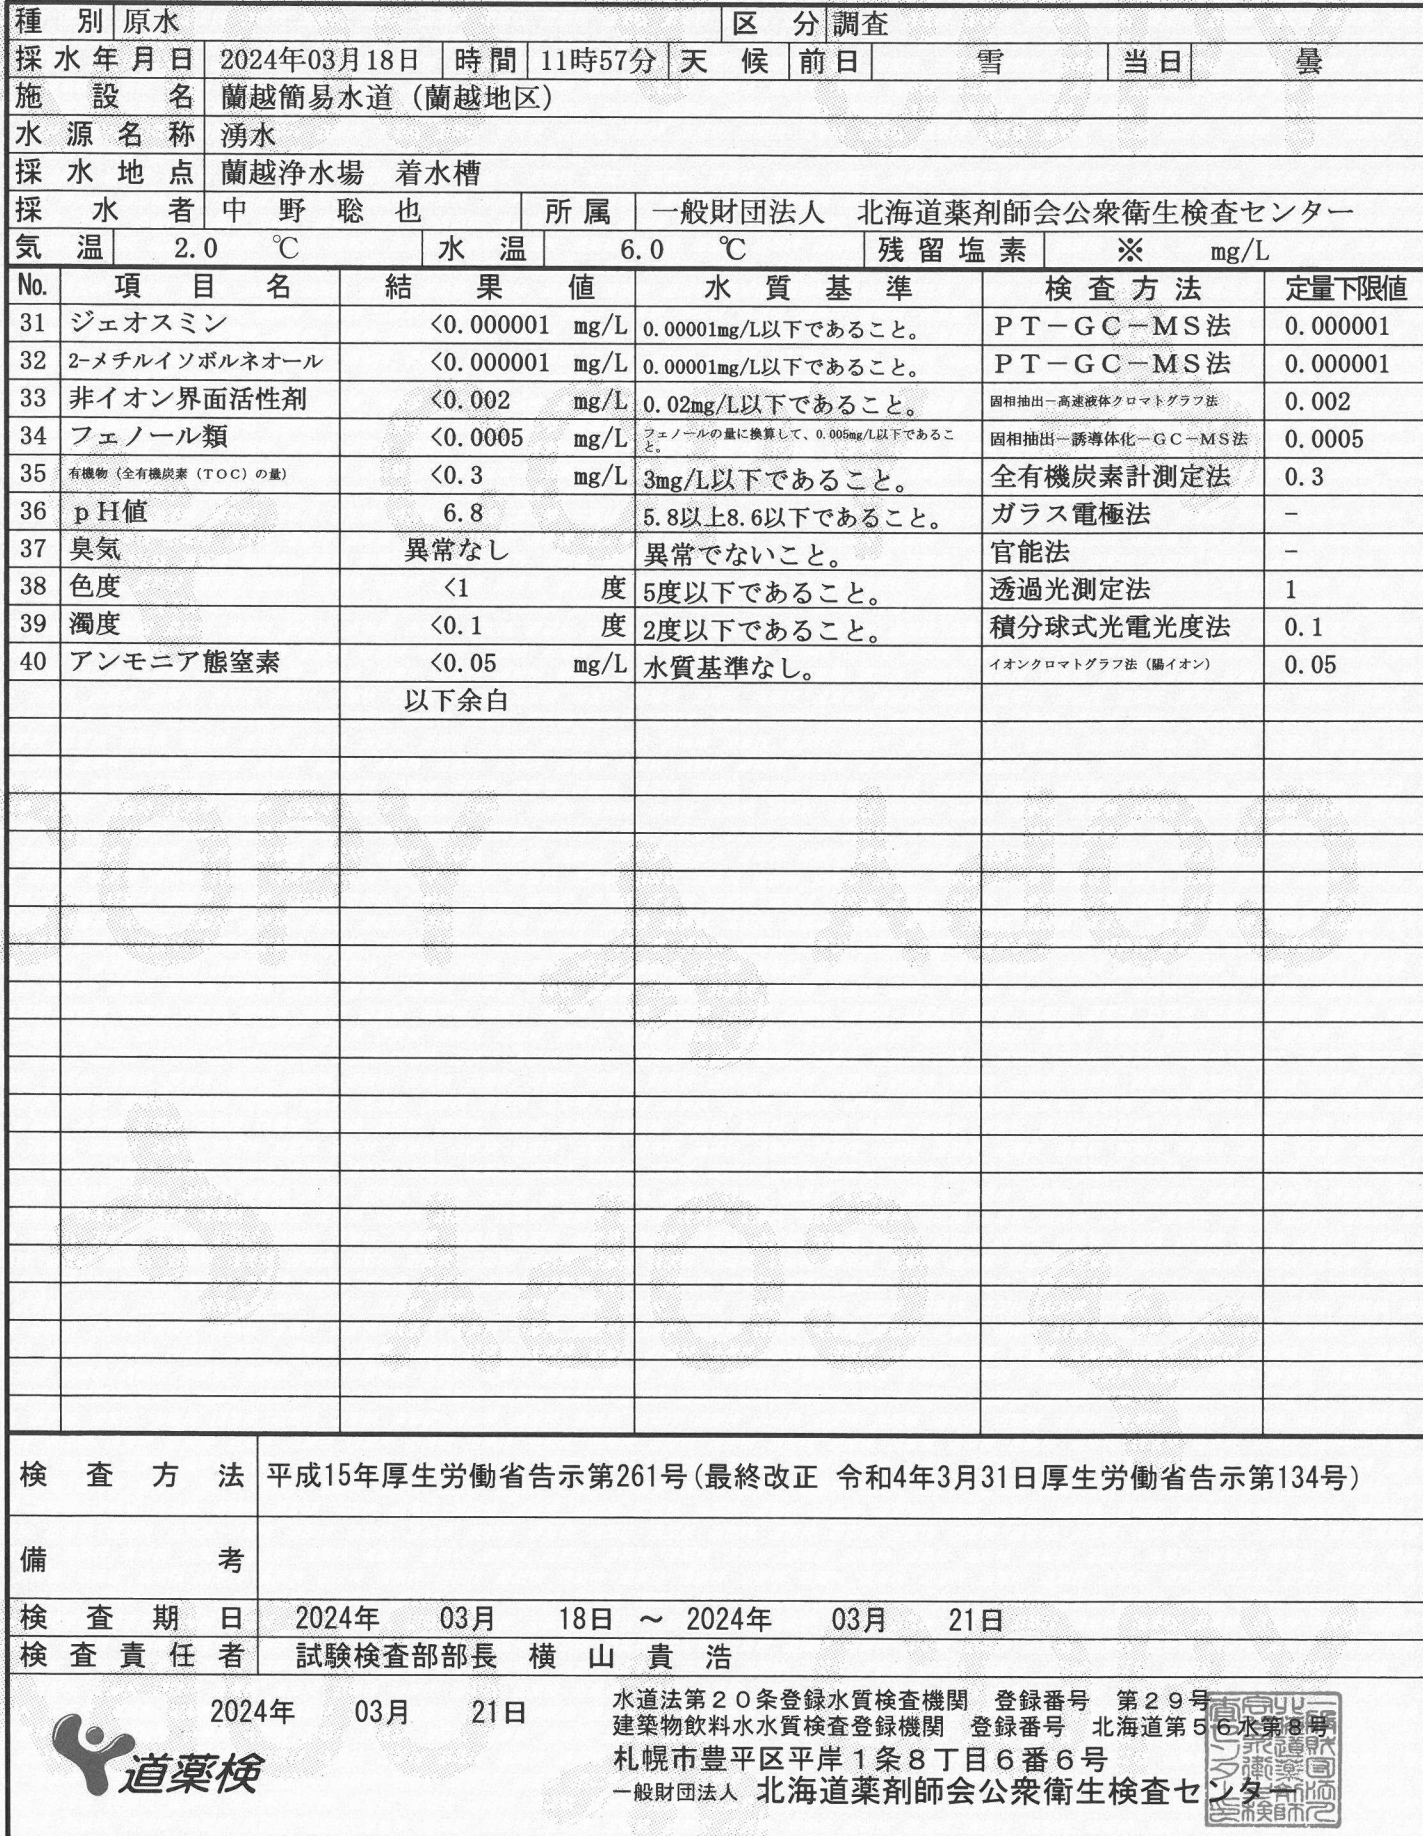 種別 原水 区分 調査
採水年月日 2024年03月18日 時間 11時57分 天候 前日 雪 当日 曇
施設名 蘭越簡易水道（蘭越地区）
水源名称 湧水
採水地点 蘭越浄水場 着水槽
採水者 中野聡也 所属 一般財団法人 北海道薬剤師会公衆衛生検査センター
気温 2.0 ℃ 水温 6.0 ℃ 残留塩素 ※ mg/L
No. 項目名 結果値 水質基準 検査方法 定量下限値
31 ジェオスミン <0.000001 mg/L 0.00001mg/L以下であること。 ＰＴ－ＧＣ－ＭＳ法 0.000001
32 2-メチルイソボルネオール <0.000001 mg/L 0.00001mg/L以下であること。 ＰＴ－ＧＣ－ＭＳ法 0.000001
33 非イオン界面活性剤 <0.002 mg/L 0.02mg/L以下であること。 固相抽出－高速液体クロマトグラフ法 0.002
34 フェノール類 <0.0005 mg/L フェノールの量に換算して、0.005mg/L以下であること。 固相抽出－誘導体化－ＧＣ－ＭＳ法 0.0005
35 有機物（全有機炭素（ＴＯＣ）の量） <0.3 mg/L 3mg/L以下であること。 全有機炭素計測定法 0.3
36 ｐＨ値 6.8 5.8以上8.6以下であること。 ガラス電極法 −
37 臭気 異常なし 異常でないこと。 官能法 −
38 色度 <1 度 5度以下であること。 透過光測定法 1
39 濁度 <0.1 度 2度以下であること。 積分球式光電光度法 0.1
40 アンモニア態窒素 <0.05 mg/L 水質基準なし。 イオンクロマトグラフ法（陽イオン） 0.05
以下余白
検査方法 平成15年厚生労働省告示第261号(最終改正 令和4年3月31日厚生労働省告示第134号)
備考
検査期日 2024年 03月 18日 ～ 2024年 03月 21日
検査責任者 試験検査部部長 横山貴浩
2024年 03月 21日
水道法第２０条登録水質検査機関 登録番号 第２９号
建築物飲料水水質検査登録機関 登録番号 北海道第５６水第８号
札幌市豊平区平岸１条８丁目６番６号
一般財団法人 北海道薬剤師会公衆衛生検査センター
道薬検
COPY
COPY
COPY